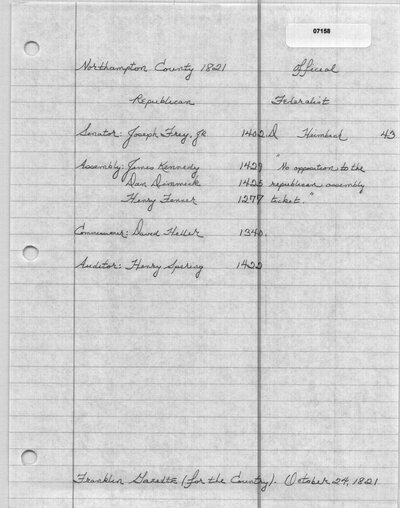 07158
Northampton County 1821 Official
Republican Federalist
Senator: Joseph Frey, Jr 1402 D Heimbach 43
Assembly: James Kennedy 1429 "No opposition to the
Dan Dimmick 1425 republican assembly
Henry Fenner 1277 ticket."
Commissioner: David Heller 1340.
Auditor: Henry Spering 1422
Franklin Gazette (for the Country). October 24, 1821